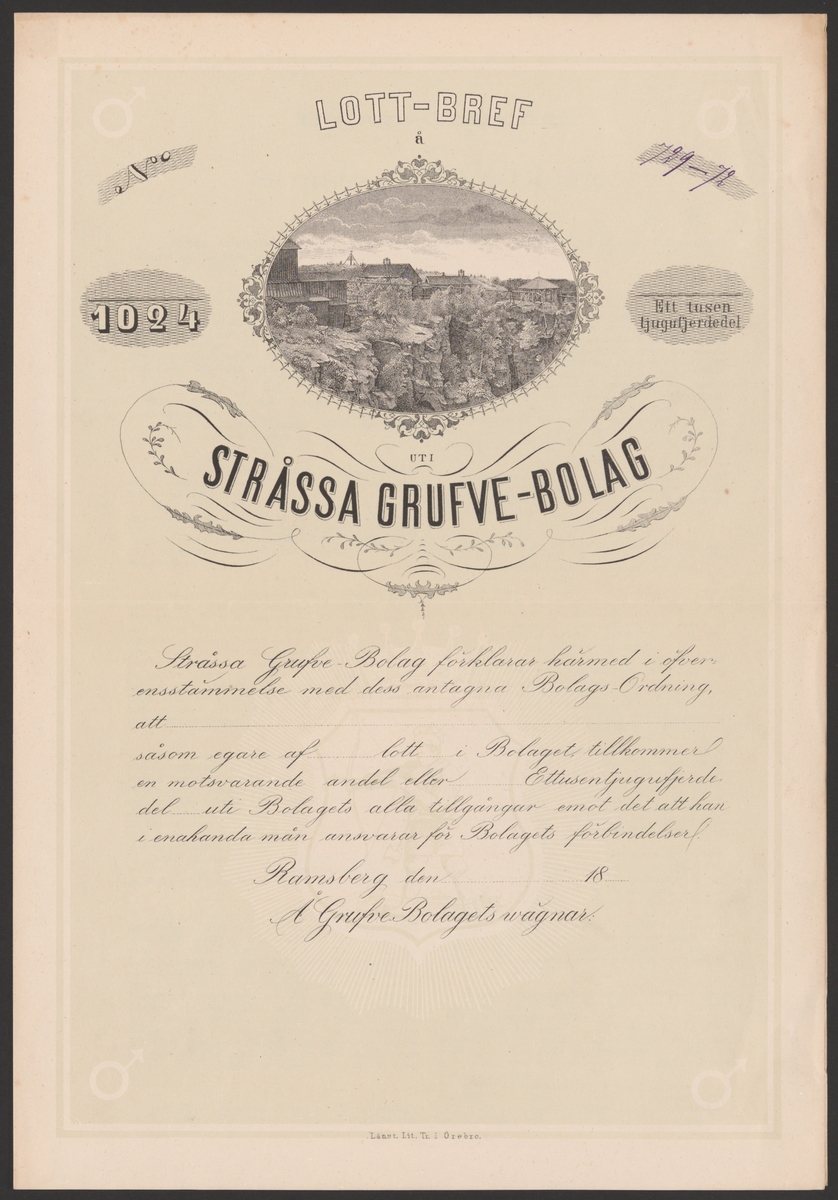 LOTT-BREF
å
No
729-72
1024
Ett tusen
tjugufjerdedel
UTI
STRÅSSA GRUFVE-BOLAG
Stråssa Grufve-Bolag förklarar härmed i öfver-
ensstämmelse med dess antagna Bolags-Ordning,
att
såsom egare af lott i Bolaget, tillkommer
en motsvarande andel eller Ettusentjugufjerde-
del uti Bolagets alla tillgångar emot det att han
i enahanda mån ansvarar för Bolagets förbindelser.
Ramsberg den 18
Å Grufve Bolagets wägnar:
Länst. Lit. Tr. i Örebro.